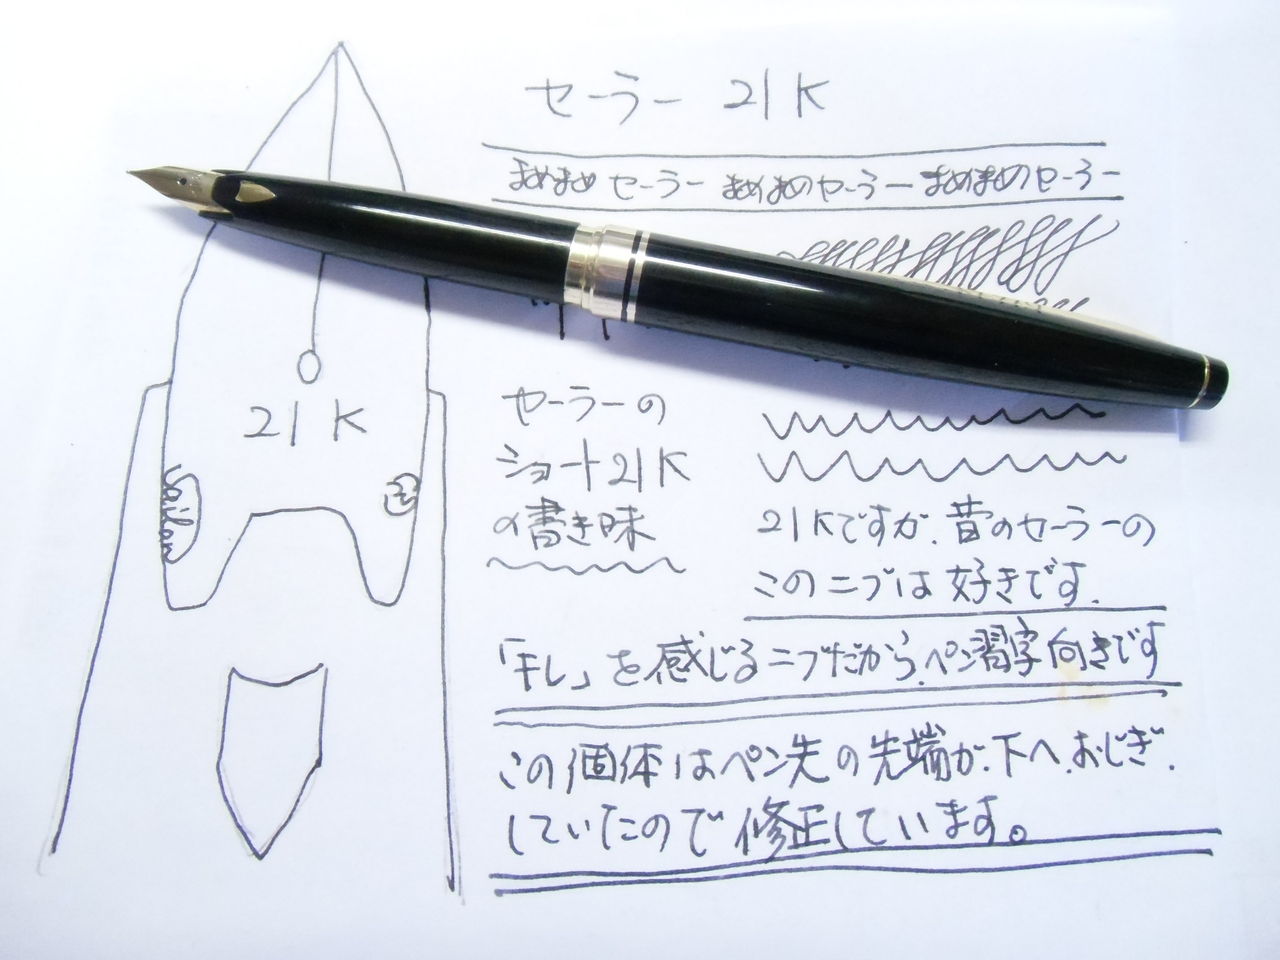 セーラー 21K
まめまめ セーラー まめまめのセーラー まめまめのセーラー
21K
Sailor
セーラーの
ショート21K
の書き味
21Kですが、昔のセーラーの
このニブは好きです.
「キレ」を感じるニブだから、ペン習字向きです
この個体はペン先の先端が、下へ、おじぎ、
していたので修正しています。